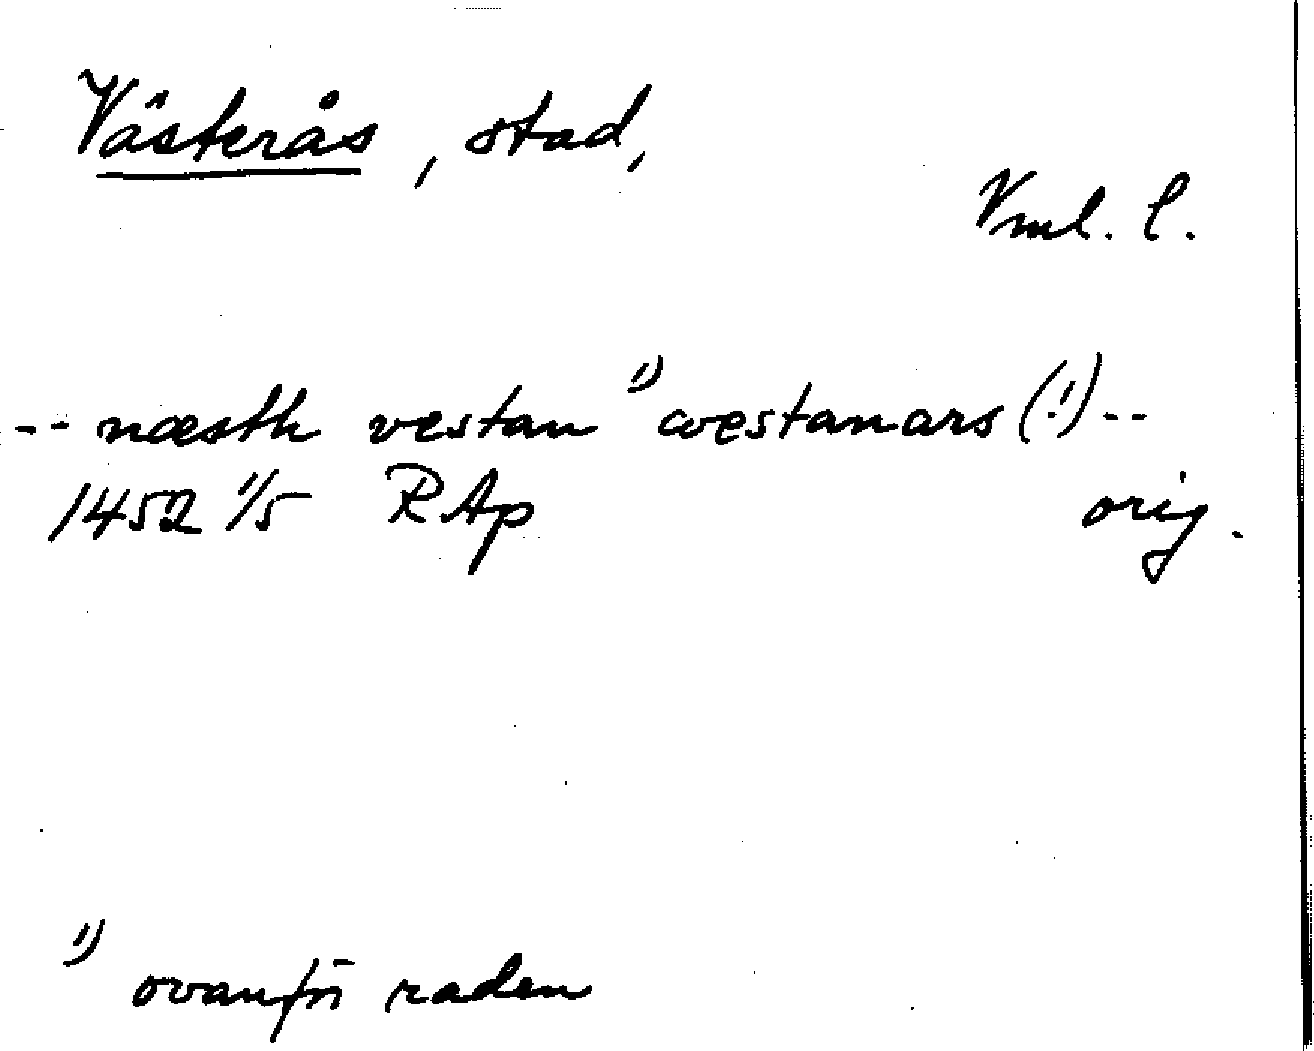 Västerås, stad,
Vml. l.
-- næsth vestan ¹⁾ westanars (!) --
1452 1/5 RAp orig.
¹⁾ ovanför raden